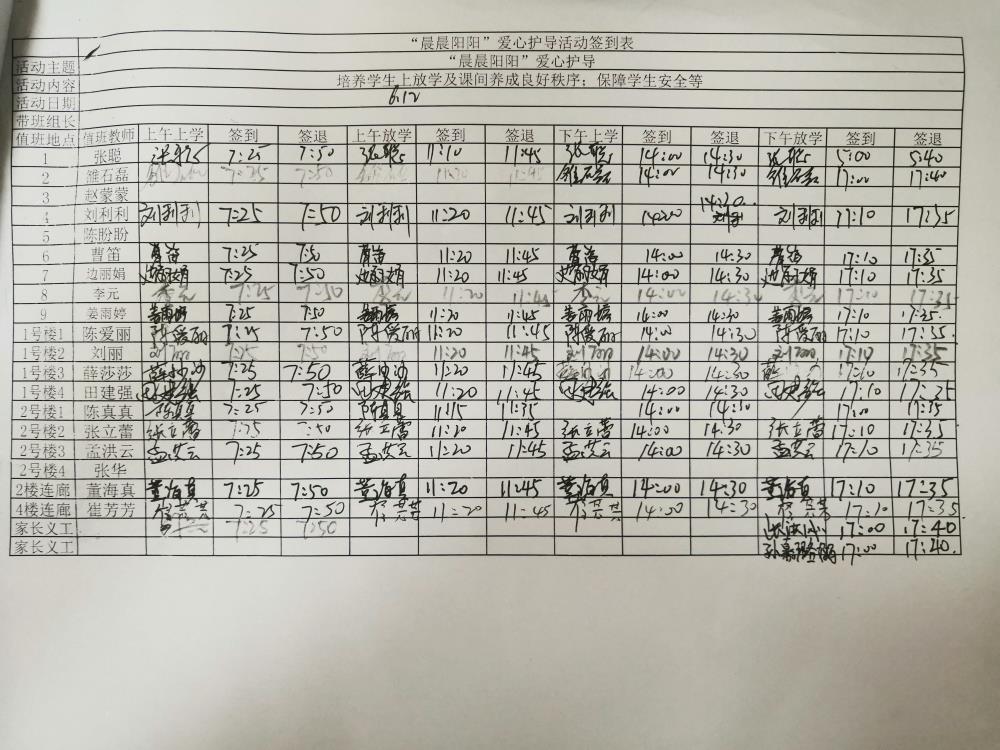 “晨晨阳阳”爱心护导活动签到表
活动主题 “晨晨阳阳”爱心护导
活动内容 培养学生上放学及课间养成良好秩序；保障学生安全等
活动日期 6.12
带班组长
值班地点 值班教师 上午上学 签到 签退 上午放学 签到 签退 下午上学 签到 签退 下午放学 签到 签退
1 张聪 7:25 7:50 张聪 11:10 11:45 张聪 14:00 14:30 张聪 5:00 5:40
2 雒石磊 7:25 7:50 11:20 11:45 雒石磊 14:00 14:30 雒石磊 17:00 17:40
3 赵蒙蒙 14:30
4 刘利利 刘利利 7:25 7:50 刘利利 11:20 11:45 刘利利 14:00 刘利利 17:10 17:35
5 陈盼盼
6 曹笛 曹笛 7:25 7:50 曹笛 11:20 11:45 曹笛 14:00 14:30 曹笛 17:10 17:35
7 边丽娟 边丽娟 7:25 7:50 边丽娟 11:20 11:45 边丽娟 14:00 14:30 边丽娟 17:10 17:35
8 李元 李元 7:25 7:50 李元 11:20 11:45 李元 14:00 14:30 李元 17:10 17:35
9 姜雨婷 姜雨婷 7:25 7:50 姜雨婷 11:20 11:45 姜雨婷 14:00 14:30 姜雨婷 17:10 17:35.
1号楼1 陈爱丽 陈爱丽 7:25 7:50 陈爱丽 11:20 11:45 陈爱丽 14:00 14:30 陈爱丽 17:10 17:35.
1号楼2 刘丽 刘丽 7:25 7:50 11:20 11:45 刘丽 14:00 14:30 刘丽 17:10 17:35
1号楼3 薛莎莎 薛莎莎 7:25 7:50 薛莎莎 11:20 11:45 薛莎莎 14:00 14:30 17:10 17:35
1号楼4 田建强 田建强 7:25 7:50 田建强 11:20 11:45 田建强 14:00 14:30 田建强 17:10 17:35
2号楼1 陈真真 陈真真 7:25 7:50 陈真真 11:15 11:35 14:00 14:30 17:00 17:35
2号楼2 张立蕾 张立蕾 7:25 7:50 张立蕾 11:20 11:45 张立蕾 14:00 14:30 张立蕾 17:10 17:35
2号楼3 孟洪云 孟洪云 7:25 7:50 孟洪云 11:20 11:45 孟洪云 14:00 14:30 孟洪云 17:10 17:35
2号楼4 张华
2楼连廊 董海真 董海真 7:25 7:50 董海真 11:20 11:45 董海真 14:00 14:30 董海真 17:10 17:35
4楼连廊 崔芳芳 崔芳芳 7:25 7:50 崔芳芳 11:20 11:45 崔芳芳 14:00 14:30 崔芳芳 17:10 17:35
家长义工 7:25 7:50 17:00 17:40
家长义工 17:00 17:40.